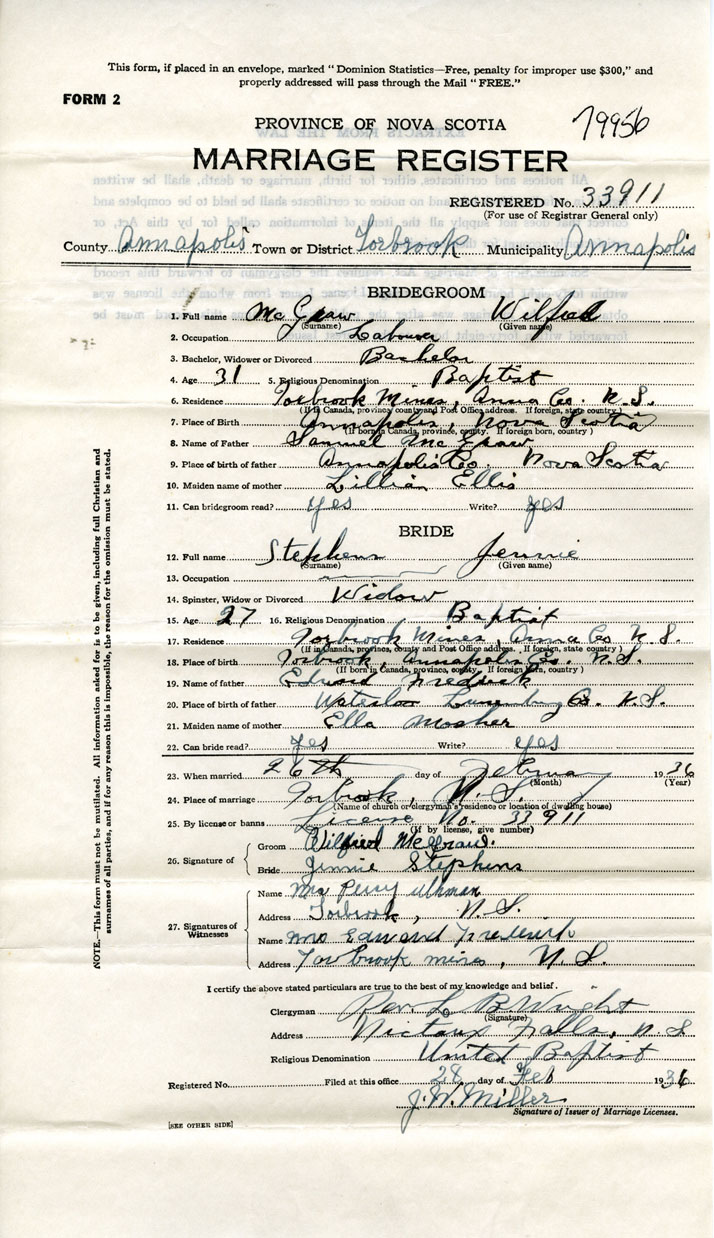 This form, if placed in an envelope, marked "Dominion Statistics—Free, penalty for improper use $300," and
properly addressed will pass through the Mail "FREE."
FORM 2
PROVINCE OF NOVA SCOTIA
79956
MARRIAGE REGISTER
REGISTERED No. 33911
(For use of Registrar General only)
County Annapolis Town or District Torbrook Municipality Annapolis
BRIDEGROOM
1. Full name McGraw Wilfred
(Surname) (Given name)
2. Occupation Labourer
3. Bachelor, Widower or Divorced Bachelor
4. Age 31 5. Religious Denomination Baptist
6. Residence Torbrook Mines, Anna Co. N.S.
(If in Canada, province county and Post Office address. If foreign, state country)
7. Place of Birth Annapolis, Nova Scotia
(If born in Canada, province, county. If foreign born, country)
8. Name of Father Samuel McGraw
9. Place of birth of father Annapolis Co. Nova Scotia
10. Maiden name of mother Lillian Ellis
11. Can bridegroom read? yes Write? yes
BRIDE
12. Full name Stephens Jennie
(Surname) (Given name)
13. Occupation
14. Spinster, Widow or Divorced Widow
15. Age 27 16. Religious Denomination Baptist
17. Residence Torbrook Mines, Anna Co N.S.
(If in Canada, province, county and Post Office address. If foreign, state country)
18. Place of birth Torbrook, Annapolis Co. N.S.
(If born in Canada, province, county, If foreign born, country)
19. Name of father Edward Frederick
20. Place of birth of father Waterloo Lunenburg Co. N.S.
21. Maiden name of mother Ella Mosher
22. Can bride read? yes Write? yes
23. When married 26th day of 1936
(Month) (Year)
24. Place of marriage Torbrook, N.S.
(Name of church or clergyman's residence or location of dwelling house)
25. By license or banns License No. 33911
(If by license, give number)
26. Signature of
Groom Wilfred McGraw.
Bride Jennie Stephens
27. Signatures of Witnesses
Name Mrs Percy
Address Torbrook, N.S.
Name Mrs Edward Frederick
Address Torbrook mines, N.S.
I certify the above stated particulars are true to the best of my knowledge and belief.
Clergyman Rev. L B. Wright
(Signature)
Address Nictaux Falls, N.S
Religious Denomination United Baptist
Registered No. Filed at this office 28 day of Feb 1936
J.W. Miller
Signature of Issuer of Marriage Licenses.
[SEE OTHER SIDE]
NOTE.—This form must not be mutilated. All information asked for is to be given, including full Christian and
surnames of all parties, and if for any reason this is impossible, the reason for the omission must be stated.